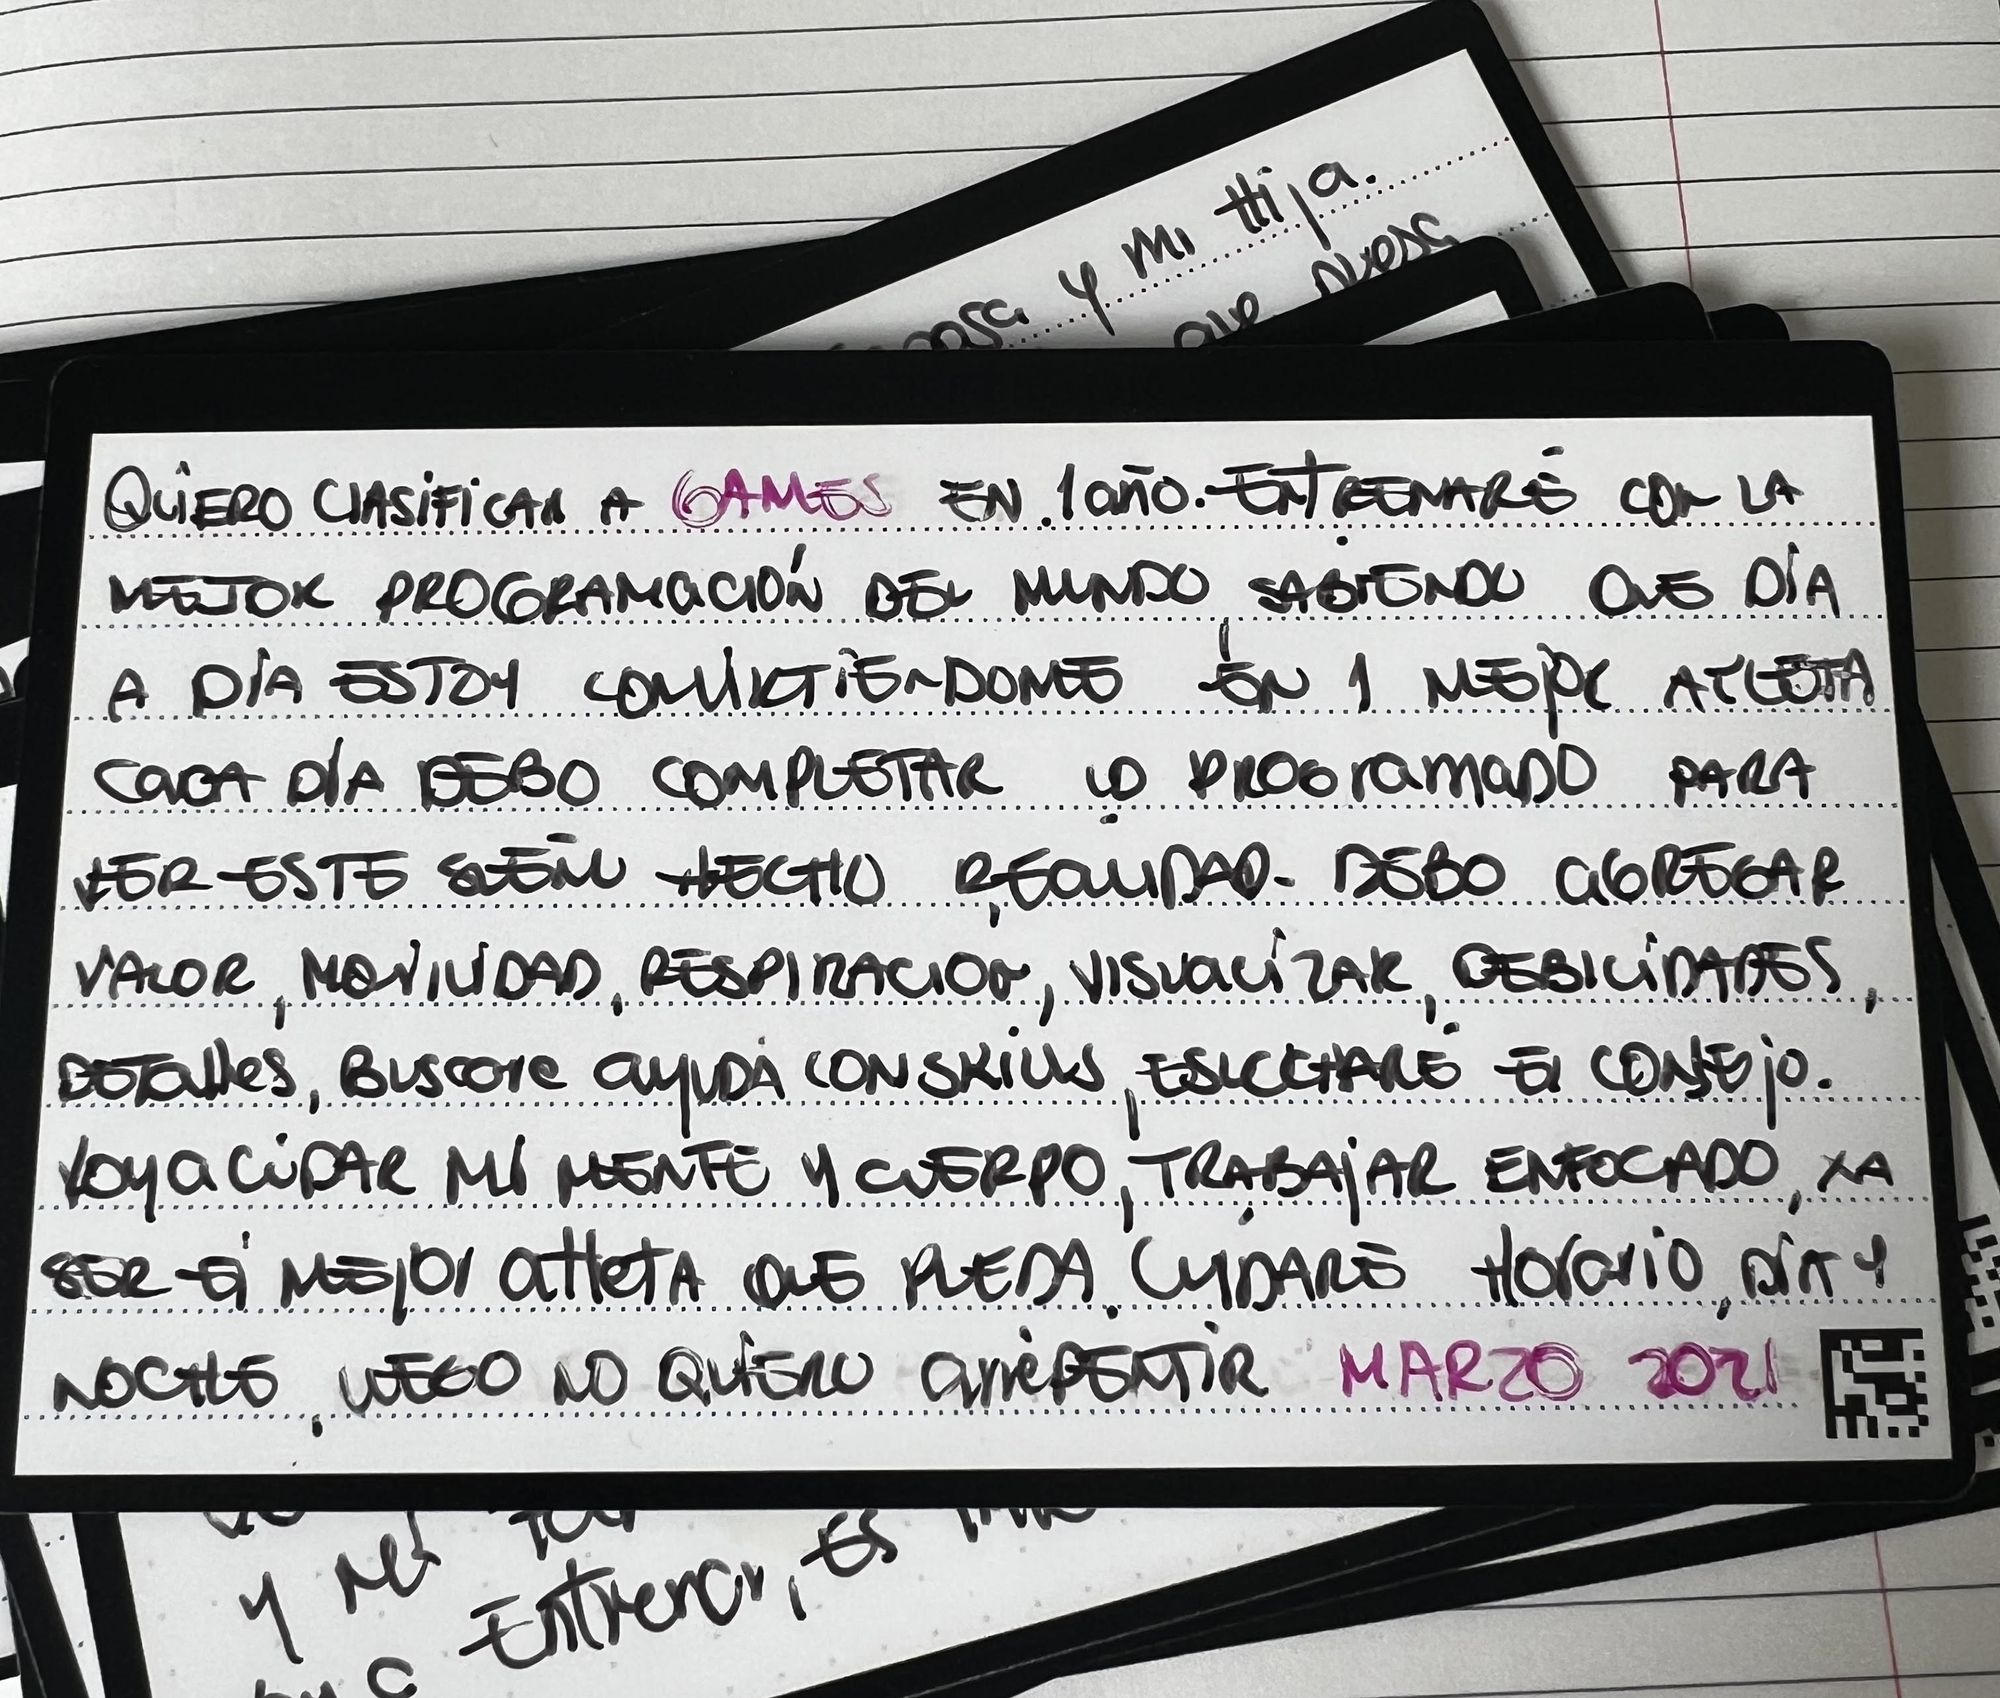 y mi Hija.
que
QUIERO CLASIFICAR A GAMES EN 1 año. ENTRENARÉ CON LA
MEJOR PROGRAMACIÓN DEL MUNDO SABIENDO QUE DÍA
A DÍA ESTOY CONVIRTIÉNDOME EN 1 MEJOR ATLETA
CADA DÍA DEBO COMPLETAR LO PROGRAMADO PARA
VER ESTE SUEÑO HECHO REALIDAD. DEBO AGREGAR
VALOR, MOVILIDAD, RESPIRACION, VISUALIZAR, DEBILIDADES,
DETALLES, BUSCARE AYUDA CON SKILLS, ESCUCHARÉ El CONSEJO.
VOY A CUIDAR MI MENTE Y CUERPO, TRABAJAR ENFOCADO, XA
SER El MEJOR atleta QUE PUEDA. CUIDARÉ Horario, DÍA Y
NOCHE, LUEGO NO QUIERO arrePENTIR MARZO 2021
y
Entrenar, Es